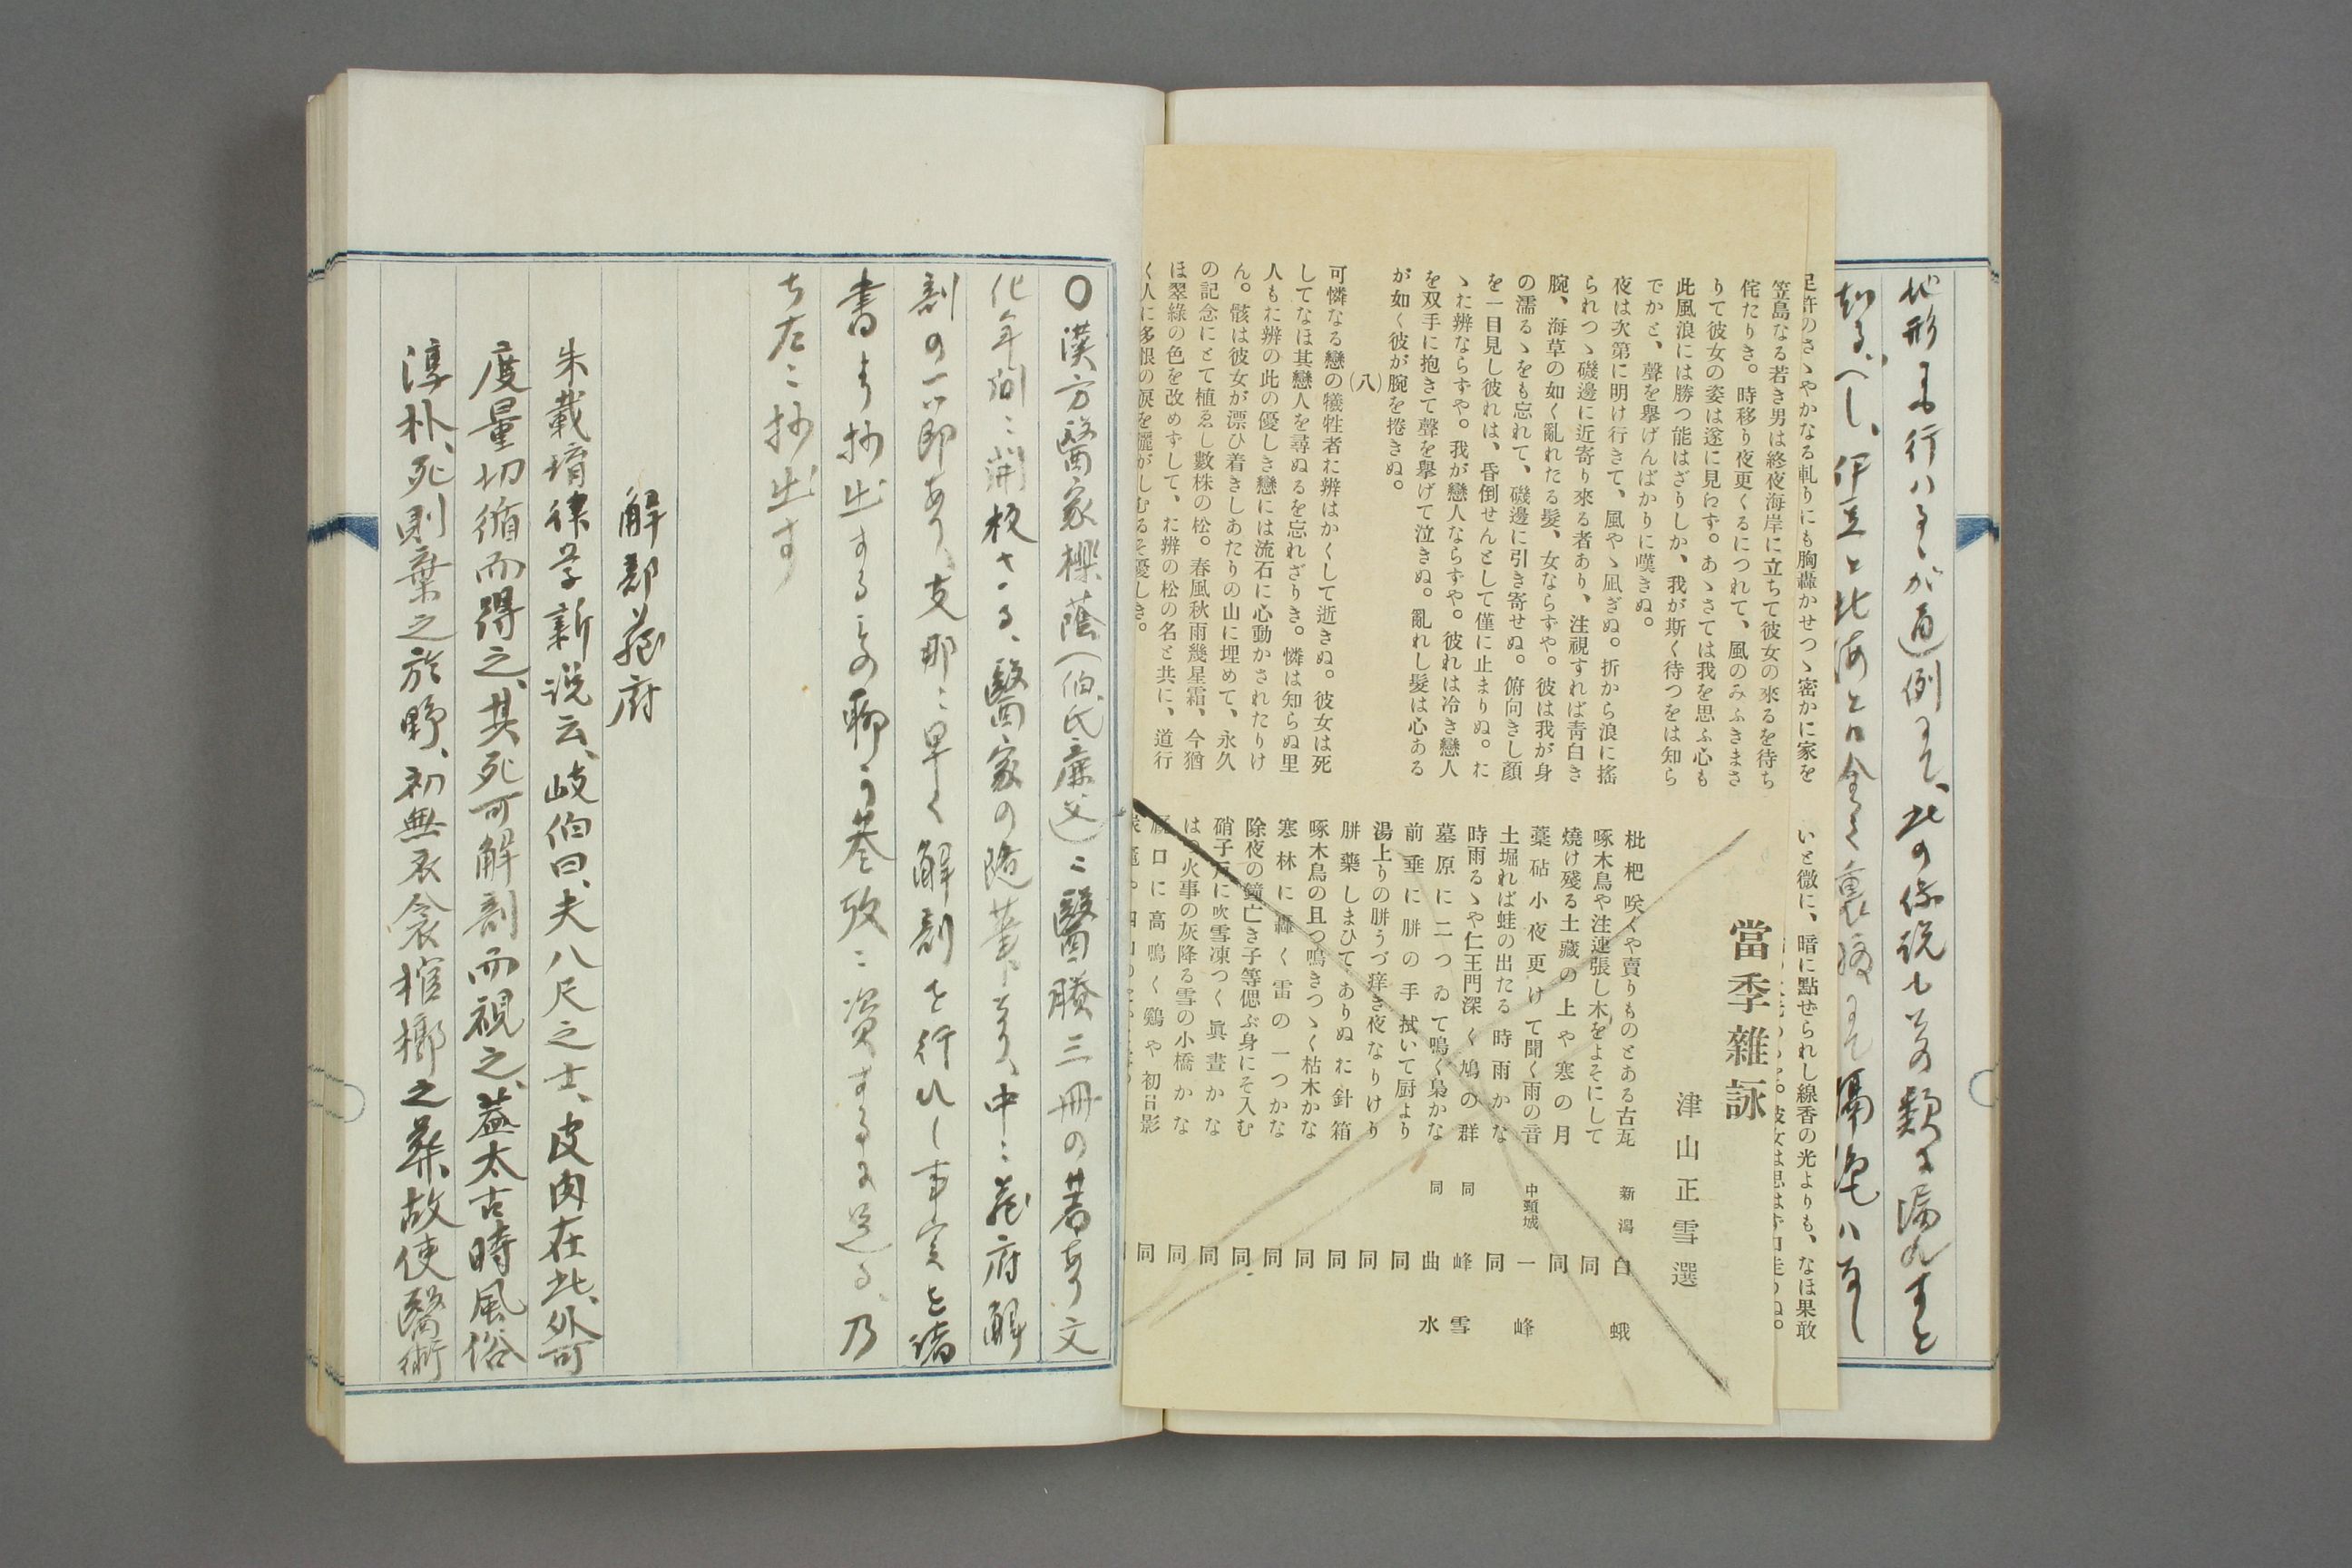 地形に行はるゝが通例にて、此の傳説も其の類に漏れすと
知るへし、伊豆と北海とは全く裏腹にて隔絶はなし
足許のさゝやかなる軋りにも胸轟かせつゝ密かに家を
笠島なる若き男は終夜海岸に立ちて彼女の來るを待ち
侘たりき。時移り夜更くるにつれて、風のみふきまさ
りて彼女の姿は遂に見らず。あゝさては我を思ふ心も
此風浪には勝つ能はざりしか、我が斯く待つをは知ら
でかと、聲を擧げんばかりに嘆きぬ。
夜は次第に明け行きて、風やゝ凪ぎぬ。折から浪に搖
られつゝ磯邊に近寄り來る者あり、注視すれば靑白き
腕、海草の如く亂れたる髮、女ならずや。彼は我が身
の濡るゝをも忘れて、磯邊に引き寄せぬ。俯向きし顔
を一目見し彼れは、昏倒せんとして僅に止まりぬ。た
ゝた辨ならずや。我が戀人ならずや。彼れは冷き戀人
を双手に抱きて聲を擧げて泣きぬ。亂れし髮は心ある
が如く彼が腕を捲きぬ。
(八)
可憐なる戀の犧牲者た辨はかくして逝きぬ。彼女は死
してなほ其戀人を尋ぬるを忘れざりき。憐は知らぬ里
人もた辨の此の優しき戀には流石に心動かされたりけ
ん。骸は彼女が漂ひ着きしあたりの山に埋めて、永久
の記念にとて植ゑし數株の松。春風秋雨幾星霜、今猶
ほ翠綠の色を改めずして、た辨の松の名と共に、道行
く人に多恨の涙を灑がしむるそ優しき。
いと微に、暗に點ぜられし線香の光よりも、なほ果敢
當季雜詠
津山正雪選
枇杷咲くや賣りものとある古瓦 新潟 白蛾
啄木鳥や注連張し木をよそにして 同
燒け殘る土藏の上や寒の月 同
藁砧小夜更けて聞く雨の音 中頸城 一峰
土堀れば蛙の出たる時雨かな 同
時雨るゝや仁王門深く鳩の群 同 峰雪
墓原に二つゐて鳴く梟かな 同 曲水
前垂に胼の手拭いて厨より 同
湯上りの胼うづ痒き夜なりけり 同
胼藥しまひてありぬた針箱 同
啄木鳥の且つ鳴きつゝく枯木かな 同
寒林に轟く雷の一つかな 同
除夜の鐘亡き子等偲ぶ身にそ入む 同
硝子戸に吹雪凍つく眞晝かな 同
はの火事の灰降る雪の小橋かな 同
口に高鳴く鷄や初日影 同
〇漢方醫家櫟蔭(伯氏廉父)ニ醫賸三冊の著あり文
化年間ニ開板さる、醫家の隨筆なり、中ニ藏府解
剖の一節あり、支那ニ早く解剖を行ひし事實を諸
書より抄出するもの聊か考攷ニ資するに足る、乃
ち左ニ抄出す
解剖藏府
朱載堉律学新説云、岐伯曰、夫八尺之士、皮肉在此、外可
度量切循而得之、其死可解剖而視之、蓋太古時風俗
淳朴、死則棄之於野、初無衣衾棺槨之葬、故使醫術